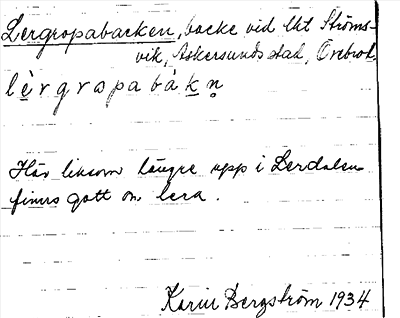 Lergropabacken, backe vid lht Ströms-
vik, Askersunds stad, Örebro l.
lèrgropabàkn̥
Här liksom längre upp i Lerdalen
finns gott om lera.
Karin Bergström 1934